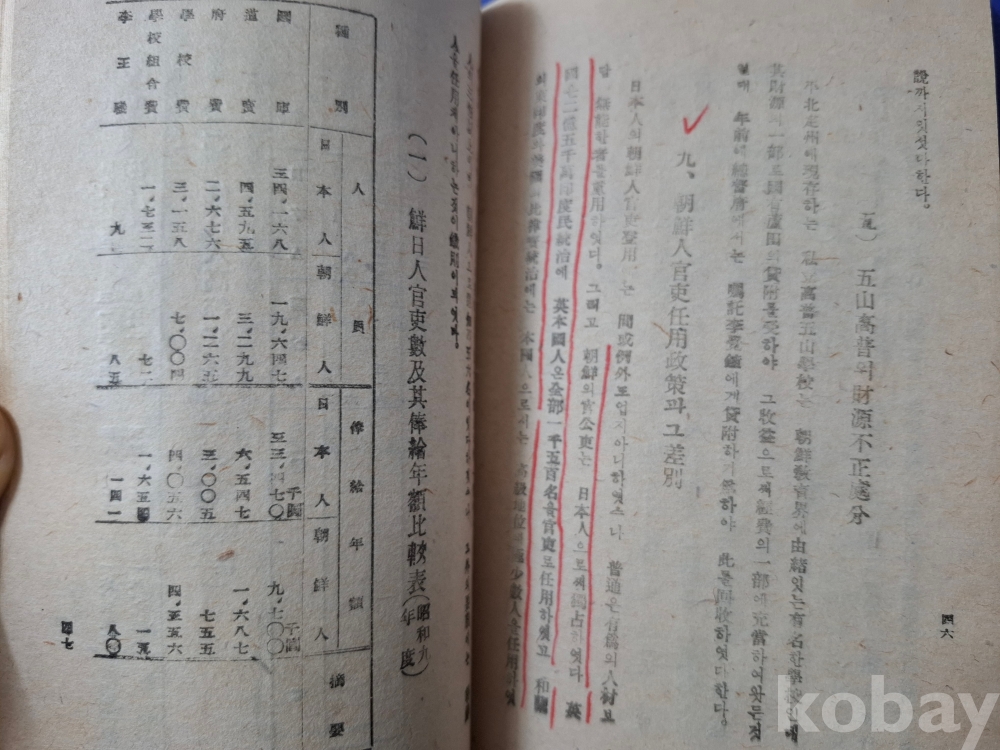 說까지잇섯다한다。
五山高普의財源不正處分
平北定州에現存하는 私立高普五山學校는 朝鮮敎育界에由緖잇는有名한學校인데
其財源의一部로國有蘆田의貸附를受하야 그收益으로써經費의一部에充當하여왓든것
인대 年前에總督府에서는 囑託李 에게貸附하기爲하야 此를回收하엿다한다。
九、朝鮮人官吏任用政策과,그差別
日本人의朝鮮人官吏登用은 間或例外도업지아니하엿스나 普通은有爲의人材보
담 無能한者를重用하엿다。그리고 朝鮮의官公吏는 日本人으로써獨占하엿다 英
國은二億五千萬印度民統治에 英本國人은全部一千五百名을官吏로任用하엿고 和蘭
의東印度와米國의比律賓統治에는 本國人으로서는 高級地位에極少數人을任用하엿
四六
人을任用치아니하는것이
(一) 鮮日人官吏數及其俸給年額比較表(昭和九年度)
種別 人員 俸給年額 摘要
日本人 朝鮮人 日本人 朝鮮人
國庫 三四,一六八 一九,六四七 七〇千圓 九,七〇〇千圓
道費 四,五九五 三,二九九 六,五四七 一,六八七
府費 二,六七六 一,二六五 三,〇〇五 七五五
學校費 三,一五八 七,〇〇四 四,〇五六 四,五五六
學校組合費 一,七三二 七二 一,六五四 一五
李王職 九 八五 一四二 八〇
四七
kobay